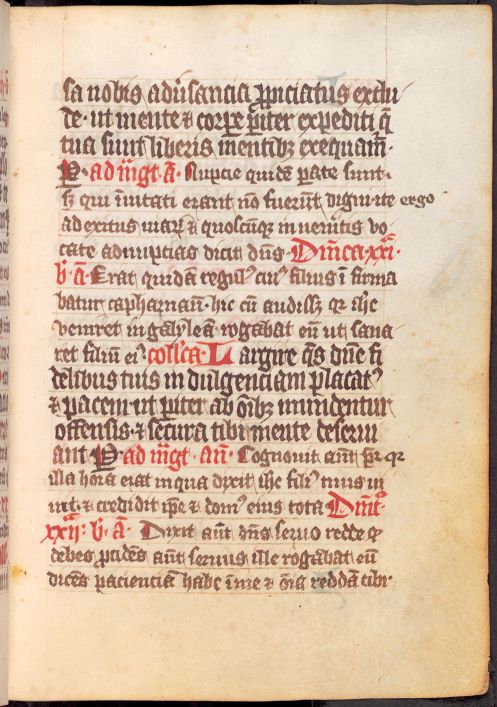 sa nobis adūsancia ꝓpiciatus exclu
de· ut mente ⁊ corꝑe ꝑiter expediti q̄
tua sunt liberis mentibꝫ exequam̄·
P̄· ad m̄gt· ā· Nupcie quidē ꝑate sunt·
sꝫ qui īuitati erant nō fuerūt digni· ite ergo
ad exitus uiarꝝ ⁊ quoscūqꝫ inueneritis vo
cate ad nuptias dicit dn̄s· Dn̄ica· xxi·
b· ā· Erat quidam regulꝰ cuiꝰ filius ī firma
batur capharnaū· hic cū audissꝫ qꝛ ihc̄
veniret in galyleā rogabat eū ut sana
ret filiū eiꝰ· coll̄ca· Largire q̄s dn̄e fi
delibus tuis indulgenciam placatꝰ
⁊ pacem· ut ꝑiter ab oīibꝫ mundentur
offensis· ⁊ secura tibi mente deserui
ant P̄· ad m̄gt· an̄· Cognouit aūt pr̄ qꝛ
illa hora erat in qua dixit ihc̄ filiꝰ tuus ui
uit· ⁊ credidit ip̄e ⁊ domꝰ eius tota Dn̄ica
xxii· b· ā· Dixit aūt dn̄s seruo redde qꝫ
debes ꝓcidēs aūt seruus ille rogabat eū
dicēs pacienciā habe ī me ⁊ oīa reddā tibi·